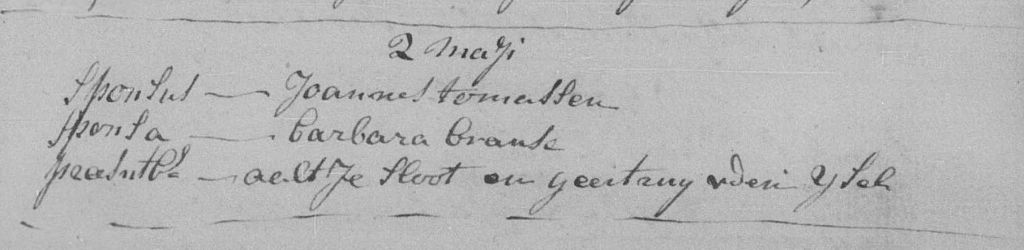 2 Maji
Sponsus — Joannes tomassen
Sponsa — barbara branse
praesntbs — aeltje Sloot en geertruy vden ysel